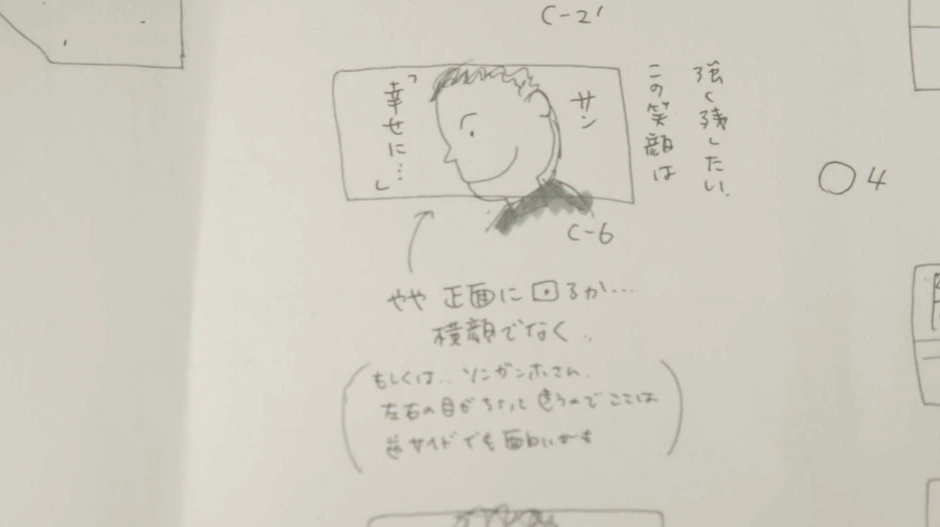 C-2'
強く残したい、
この笑顔は
サン
「幸せに…」
C-6
○4
やや 正面に回るか…
横顔でなく..
(もしくは.. ソンガンホさん、
左右の目がちょっと違うのでここは
逆サイドでも面白いかも)